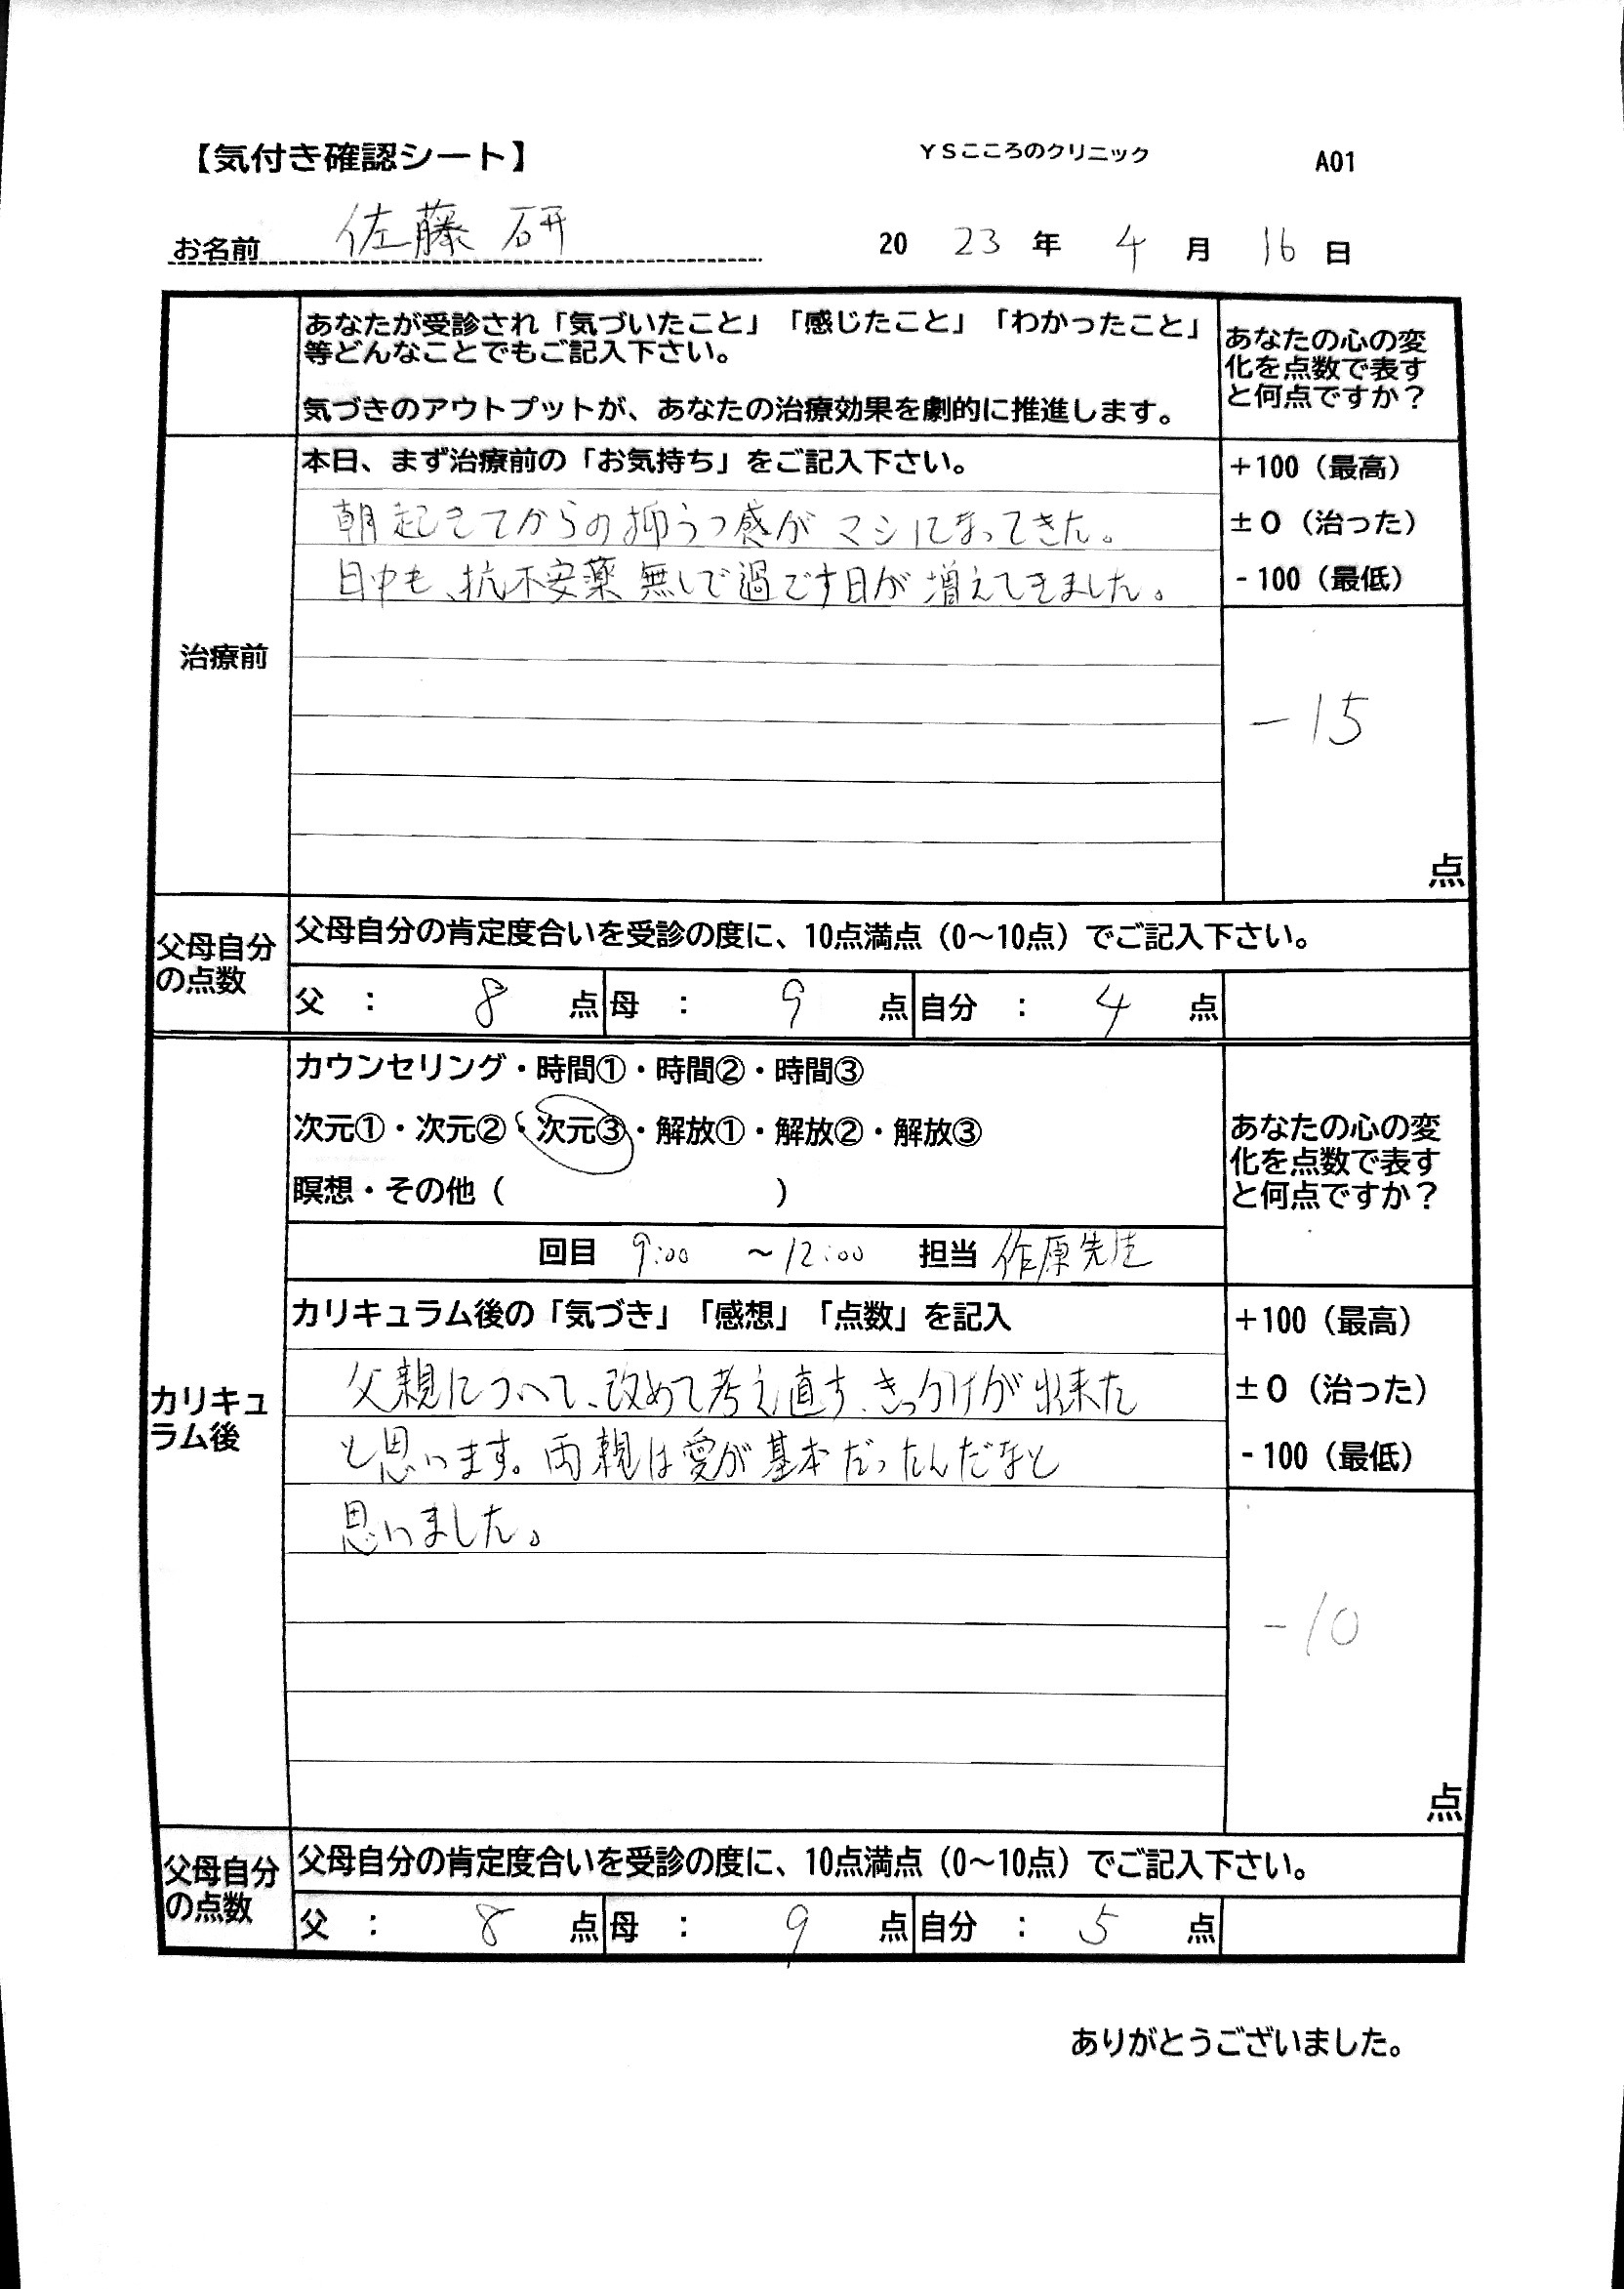 【気付き確認シート】 ＹＳこころのクリニック A01
お名前 佐藤 研 20 23 年 4 月 16 日
あなたが受診され「気づいたこと」「感じたこと」「わかったこと」
等どんなことでもご記入下さい。
気づきのアウトプットが、あなたの治療効果を劇的に推進します。
あなたの心の変
化を点数で表す
と何点ですか？
治療前
本日、まず治療前の「お気持ち」をご記入下さい。
朝起きてからの抑うつ感がマシになってきた。
日中も、抗不安薬無しで過ごす日が増えてきました。
+100（最高）
±0（治った）
-100（最低）
-15
点
父母自分
の点数
父母自分の肯定度合いを受診の度に、10点満点（0～10点）でご記入下さい。
父 ： 8 点 母 ： 9 点 自分 ： 4 点
カリキュ
ラム後
カウンセリング・時間①・時間②・時間③
次元①・次元②・次元③・解放①・解放②・解放③
瞑想・その他（ ）
回目 9:00 ～12:00 担当 作原先生
あなたの心の変
化を点数で表す
と何点ですか？
カリキュラム後の「気づき」「感想」「点数」を記入
父親について、改めて考え直す、きっかけが出来た
と思います。両親は愛が基本だったんだなと
思いました。
+100（最高）
±0（治った）
-100（最低）
-10
点
父母自分
の点数
父母自分の肯定度合いを受診の度に、10点満点（0～10点）でご記入下さい。
父 ： 8 点 母 ： 9 点 自分 ： 5 点
ありがとうございました。